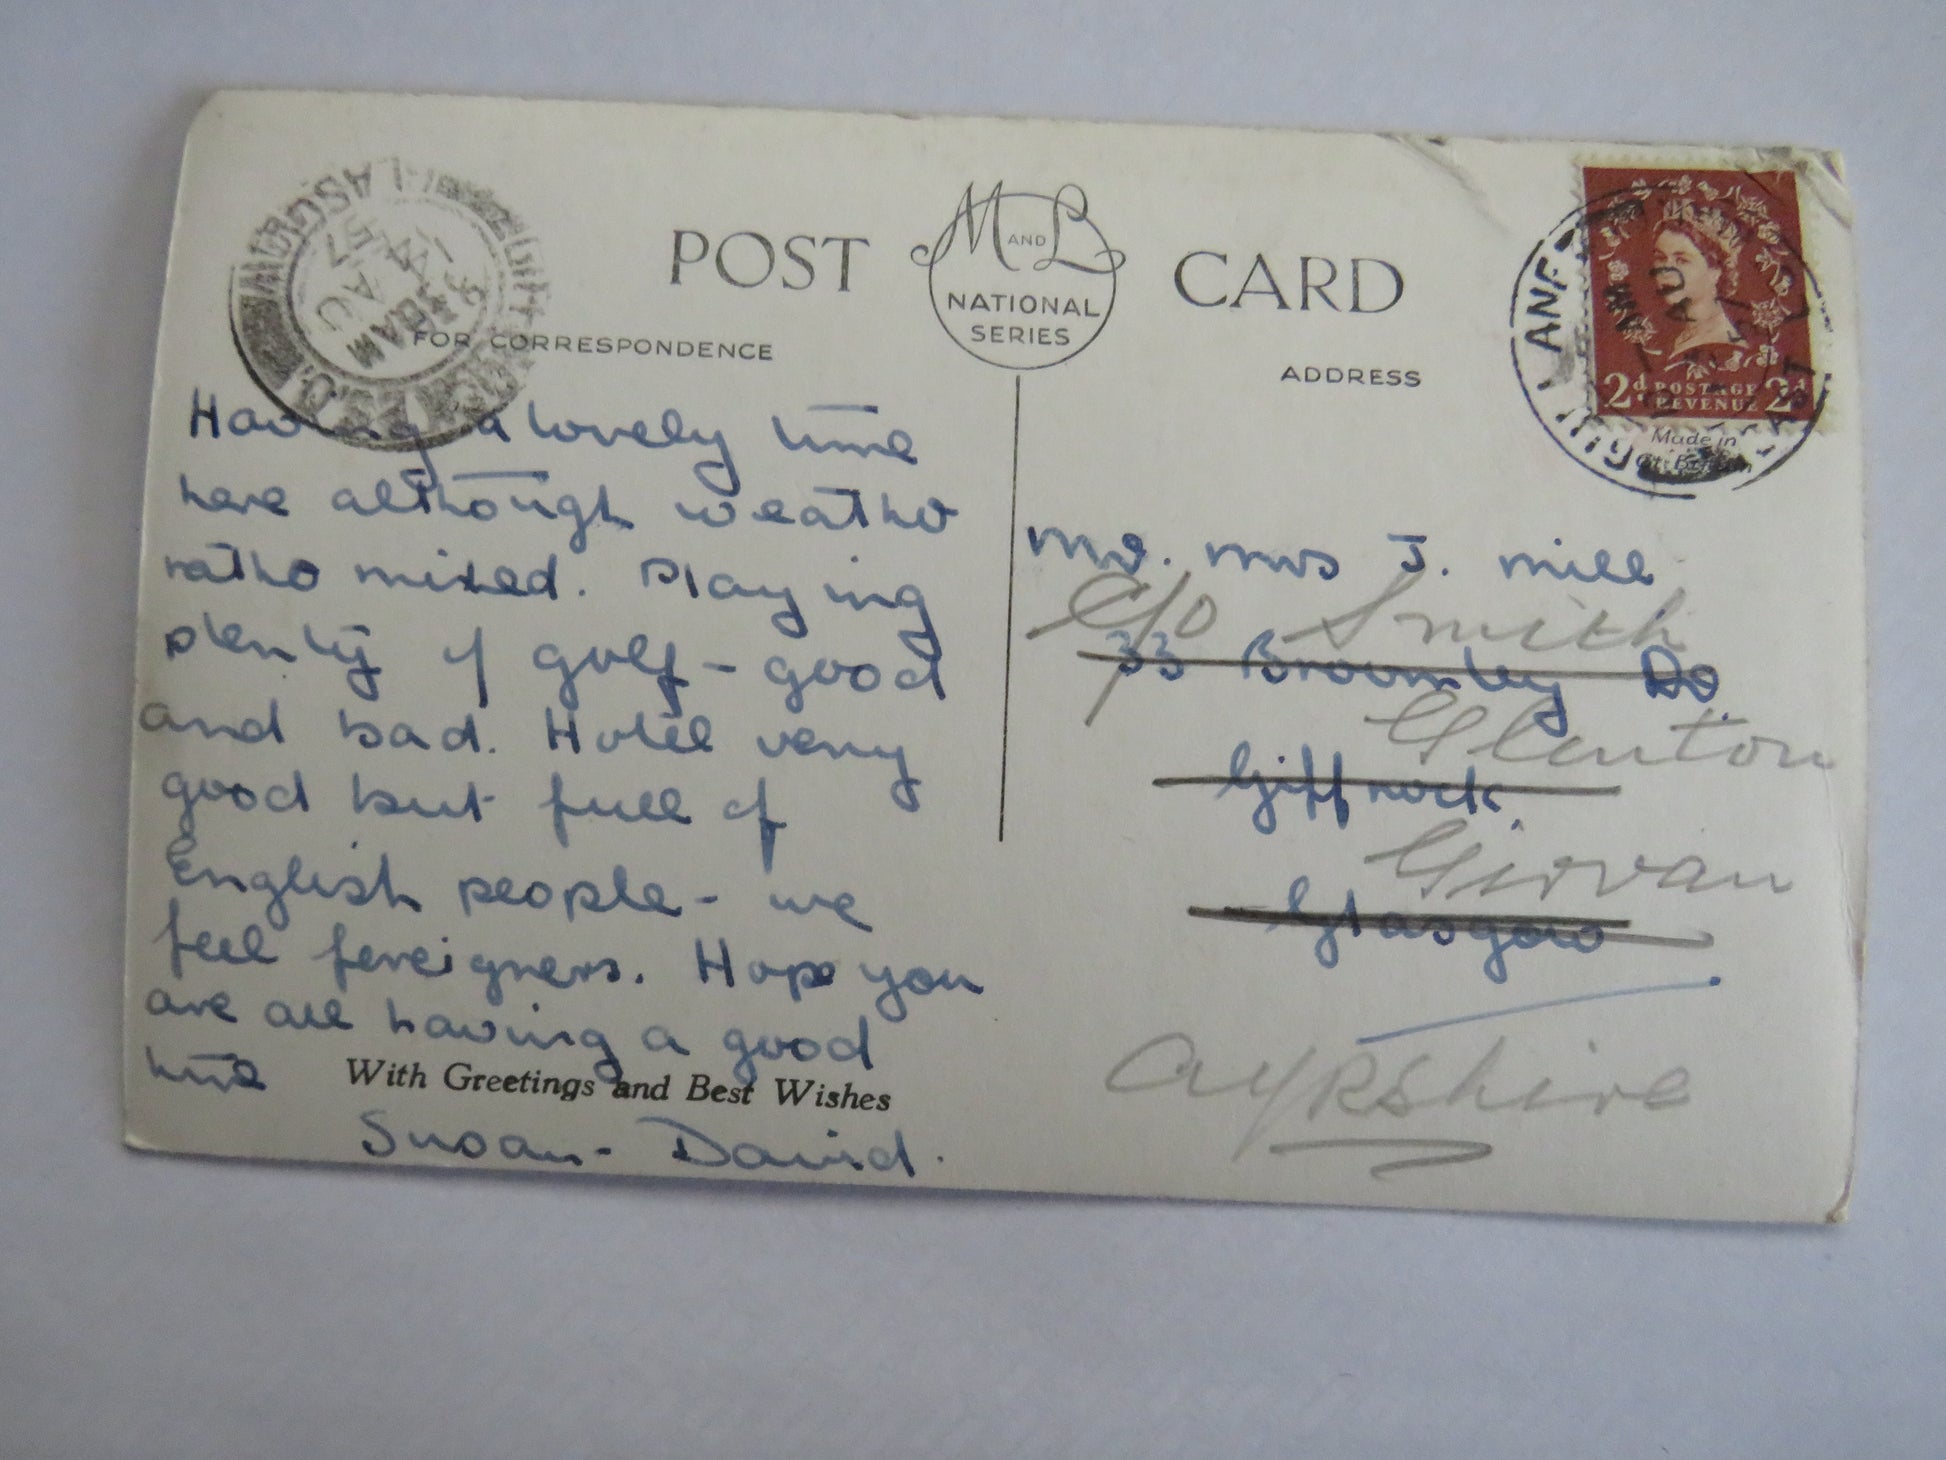 POST CARD
M AND L
NATIONAL
SERIES
FOR CORRESPONDENCE
ADDRESS
GLASGOW
AU
57
2d POSTAGE 2d
REVENUE
Made in
Gt. Britain
Having a lovely time
here although weather
rather mixed. Playing
plenty of golf - good
and bad. Hotel very
good but full of
English people - we
feel foreigners. Hope you
are all having a good
time
With Greetings and Best Wishes
Susan - David.
Mr. Mrs J. Mill
c/o Smith
33 Broomley Dr.
Glenton
Giffnock.
Girvan
Glasgow
Ayrshire